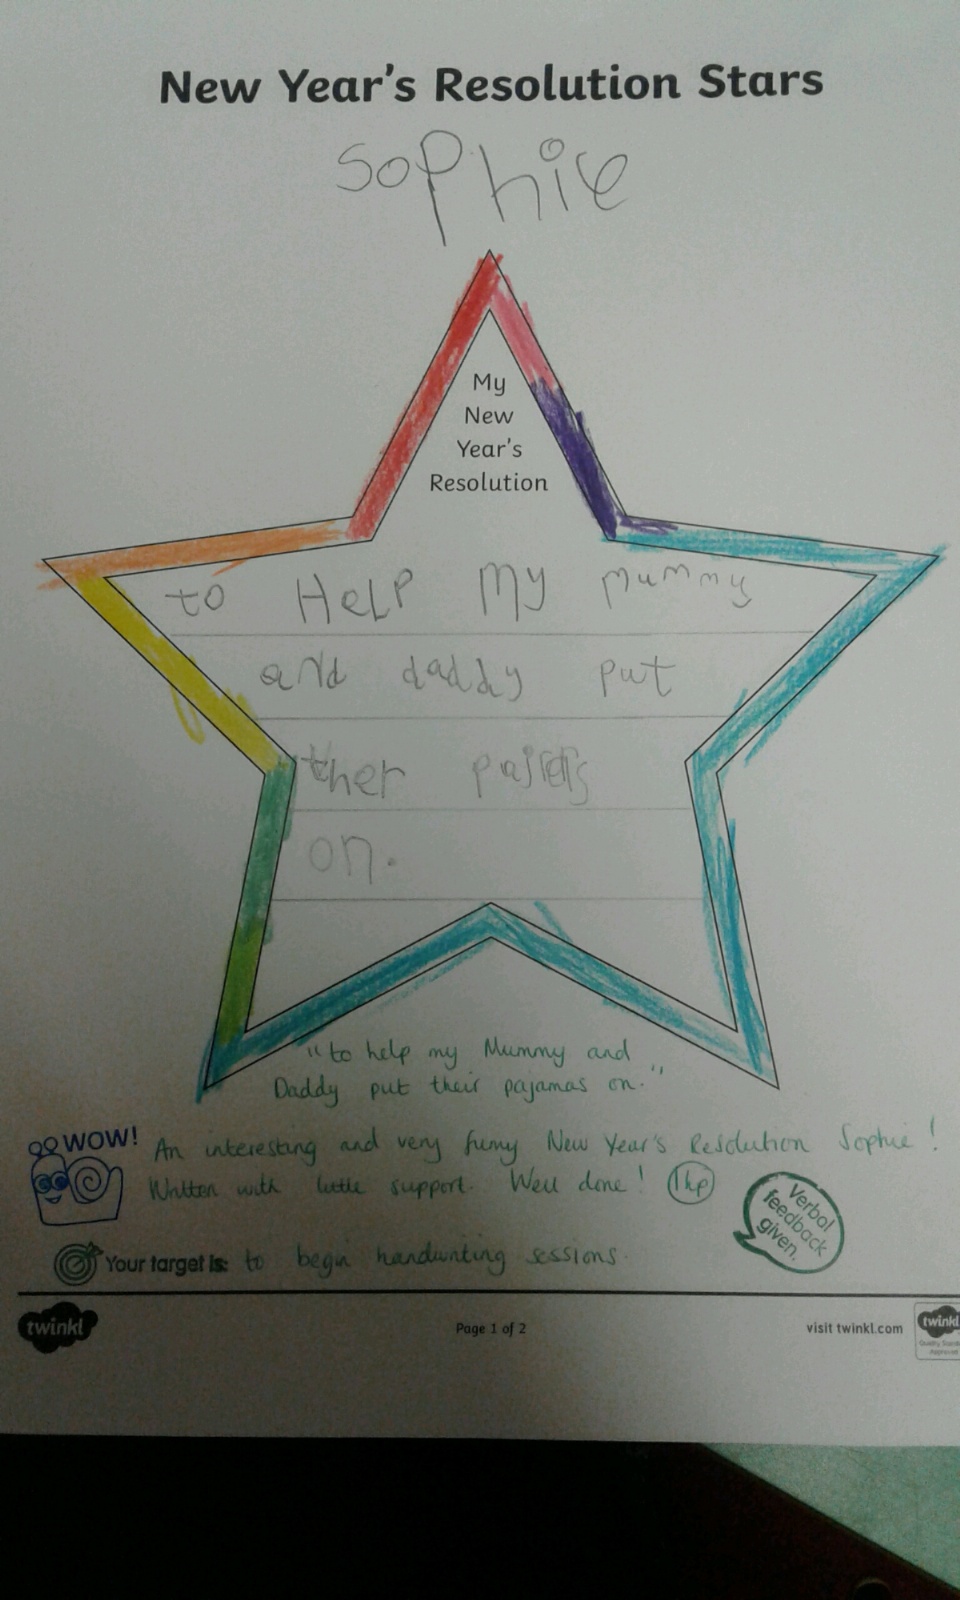 New Year's Resolution Stars
SoPhie
My
New
Year's
Resolution
to HeLP My Mummy
and daddy put
ther
on.
"to help my Mummy and
Daddy put their pajamas on."
WOW! An interesting and very funny New Year's Resolution Sophie!
Written with little support. Well done! 1hp
Verbal
feedback
given.
Your target is: to begin handwriting sessions.
twinkl
Page 1 of 2
visit twinkl.com
twinkl
Approved